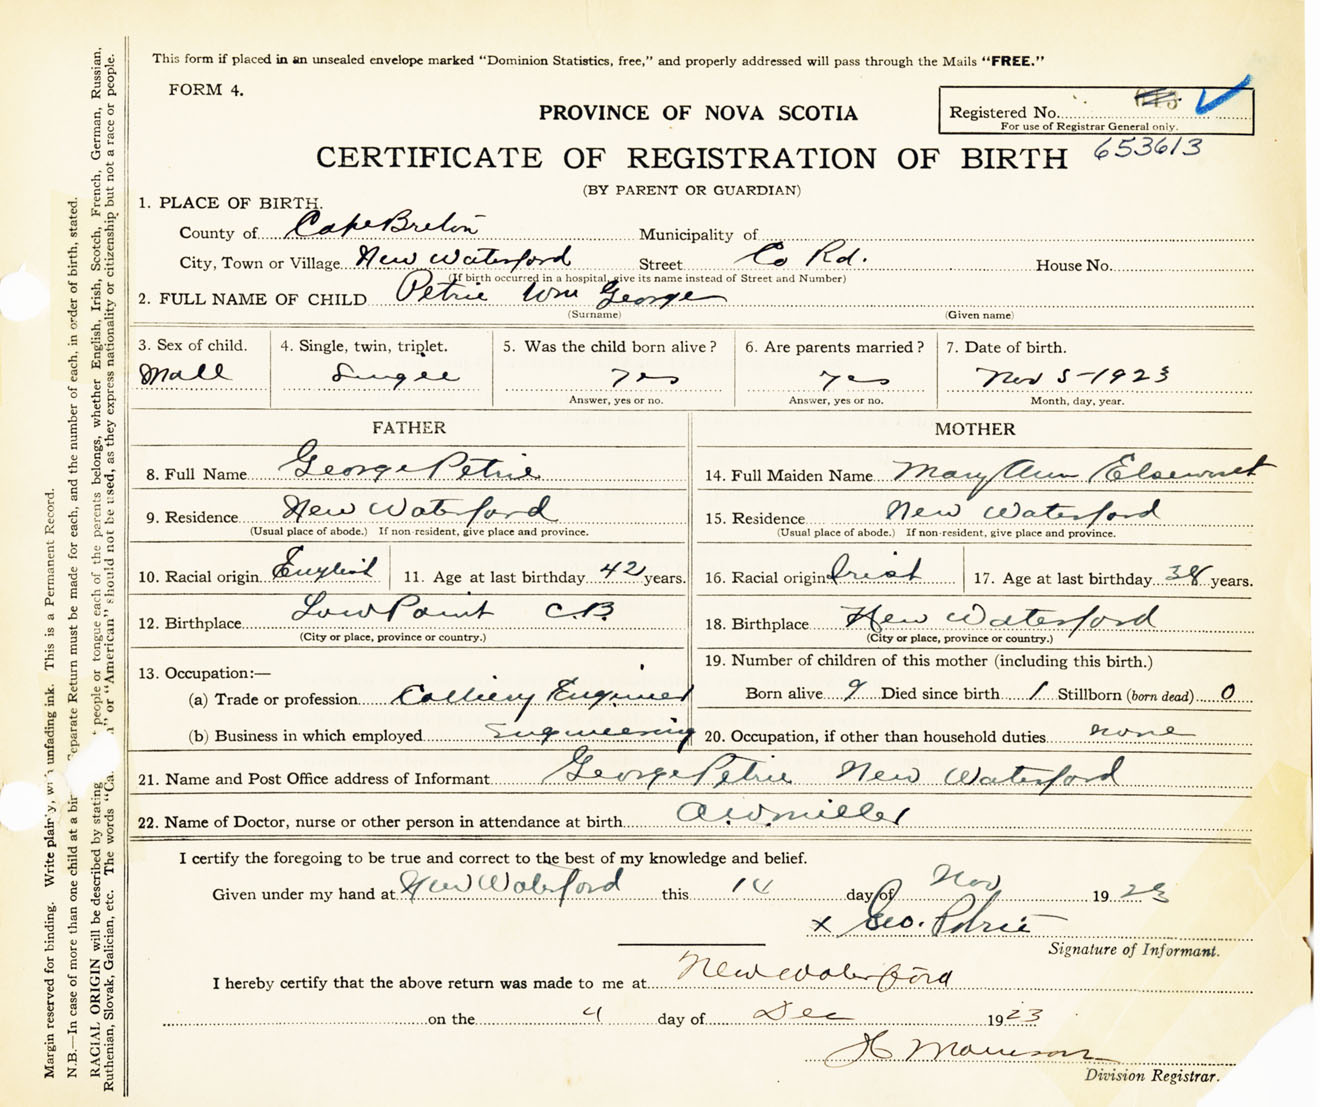 This form if placed in an unsealed envelope marked "Dominion Statistics, free," and properly addressed will pass through the Mails "FREE."
FORM 4.
PROVINCE OF NOVA SCOTIA
Registered No.
For use of Registrar General only.
653613
CERTIFICATE OF REGISTRATION OF BIRTH
(BY PARENT OR GUARDIAN)
1. PLACE OF BIRTH.
County of Cape Breton Municipality of
City, Town or Village New Waterford Street Co Rd. House No.
(If birth occurred in a hospital, give its name instead of Street and Number)
2. FULL NAME OF CHILD Petrie Wm George
(Surname) (Given name)
3. Sex of child. 4. Single, twin, triplet. 5. Was the child born alive? 6. Are parents married? 7. Date of birth.
Mall Singel yes yes Nov 5-1923
Answer, yes or no. Answer, yes or no. Month, day, year.
FATHER MOTHER
8. Full Name George Petrie 14. Full Maiden Name Mary Ann
9. Residence New Waterford 15. Residence New Waterford
(Usual place of abode.) If non-resident, give place and province. (Usual place of abode.) If non-resident, give place and province.
10. Racial origin English 11. Age at last birthday 42 years. 16. Racial origin Irish 17. Age at last birthday 38 years.
12. Birthplace Low Point C.B. 18. Birthplace New Waterford
(City or place, province or country.) (City or place, province or country.)
13. Occupation:— 19. Number of children of this mother (including this birth.)
(a) Trade or profession Colliery Engineer Born alive 9 Died since birth 1 Stillborn (born dead) 0
(b) Business in which employed Engineering 20. Occupation, if other than household duties none
21. Name and Post Office address of Informant George Petrie New Waterford
22. Name of Doctor, nurse or other person in attendance at birth A.W. Miller
I certify the foregoing to be true and correct to the best of my knowledge and belief.
Given under my hand at New Waterford this 14 day of Nov 1923
x Geo. Petrie
Signature of Informant.
I hereby certify that the above return was made to me at New Waterford
on the 4 day of Dec 1923
H Morrison
Division Registrar.
Margin reserved for binding. Write plainly, with unfading ink. This is a Permanent Record.
N.B.—In case of more than one child at a bir Separate Return must be made for each, and the number of each, in order of birth, stated.
RACIAL ORIGIN will be described by stating people or tongue each of the parents belongs, whether English, Irish, Scotch, French, German, Russian,
Ruthenian, Slovak, Galician, etc. The words "Ca n" or "American" should not be used, as they express nationality or citizenship but not a race or people.